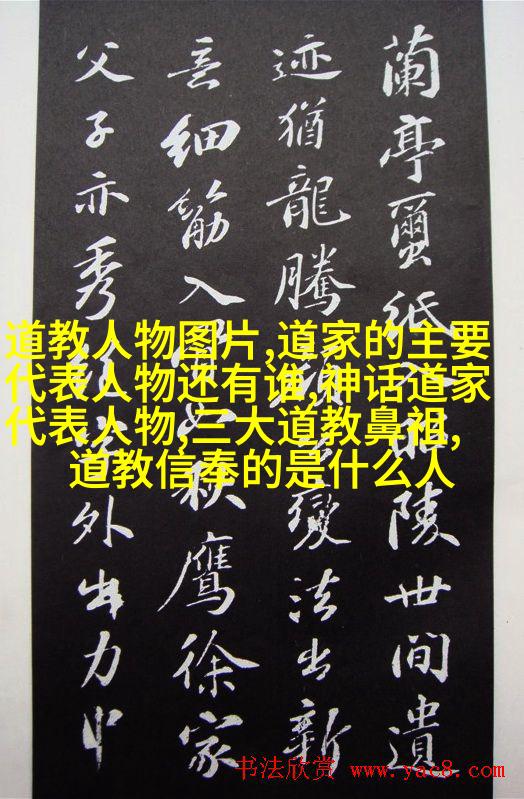 道教人物图片,道家的主要
代表人物还有谁,神话道家
代表人物,三大道教鼻祖,
道教信奉的是什么人
蘭亭蠒紙入昭陵世間遺
迹猶龍騰變法出新
意細筋入秋鷹徐家
父子亦秀外出力中
书法欣赏 www.yac8.com